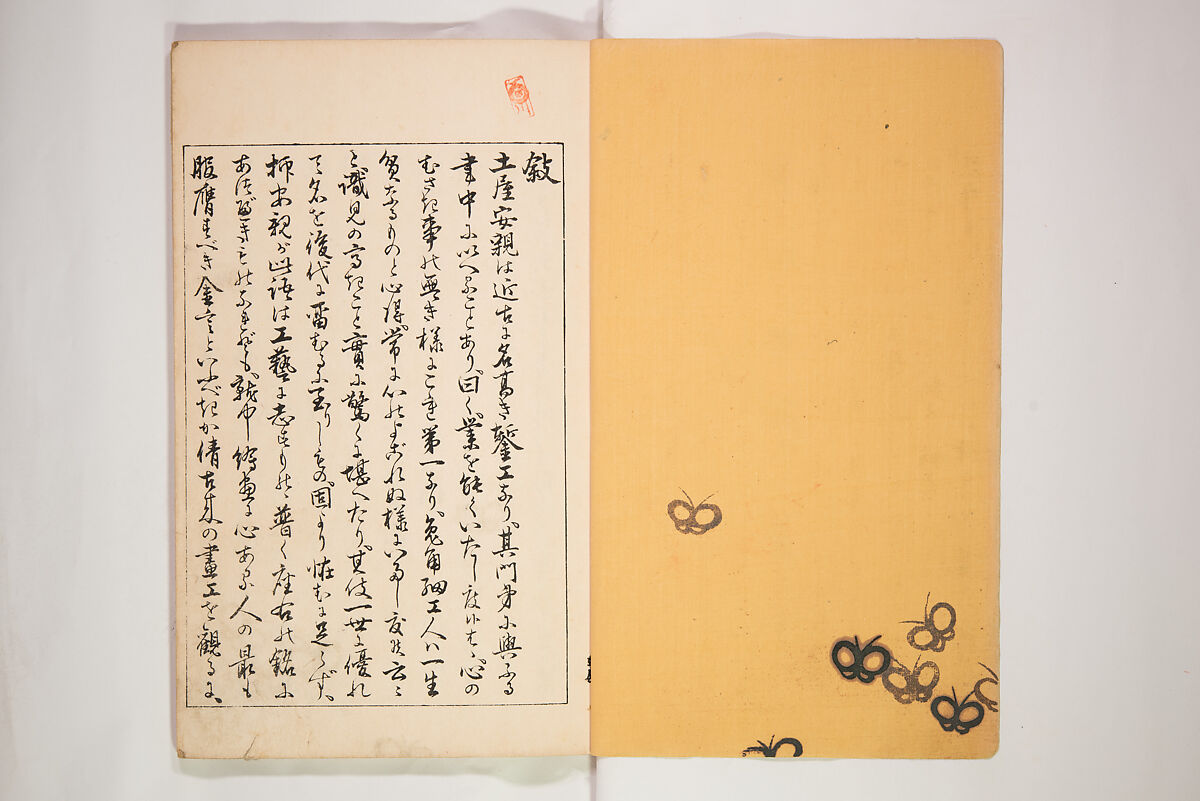 敍
土屋安親は近古に名高き鏨工なり其門弟に與ふる
書中に以へることあり曰く業を能くいたし度候はゝ心の
むさき事の無き様にこれ第一なり兎角細工人ハ一生
貧なるものと心得常に心のよごれぬ様にいたし度候云々
と識見の高きこと實に驚くに堪へたり其伎一世に優れ
て名を後代に留むるに至りしもの固より怪むに足らず
抑安親が此語は工藝に志すもの普く座右の銘に
あつべきものなれども就中繪畫に心ある人の最も
服膺すべき金言といふべきか倩古来の畫工を觀るに